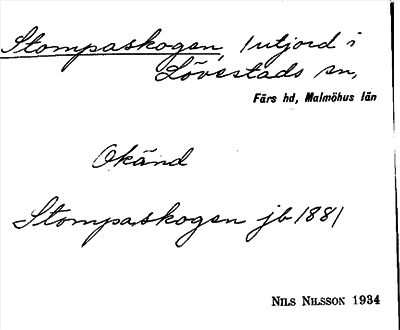 Stompaskogen, 1 utjord i
Lövestads sn,
Färs hd, Malmöhus län
Okänd
Stompaskogen jb 1881
NILS NILSSON 1934